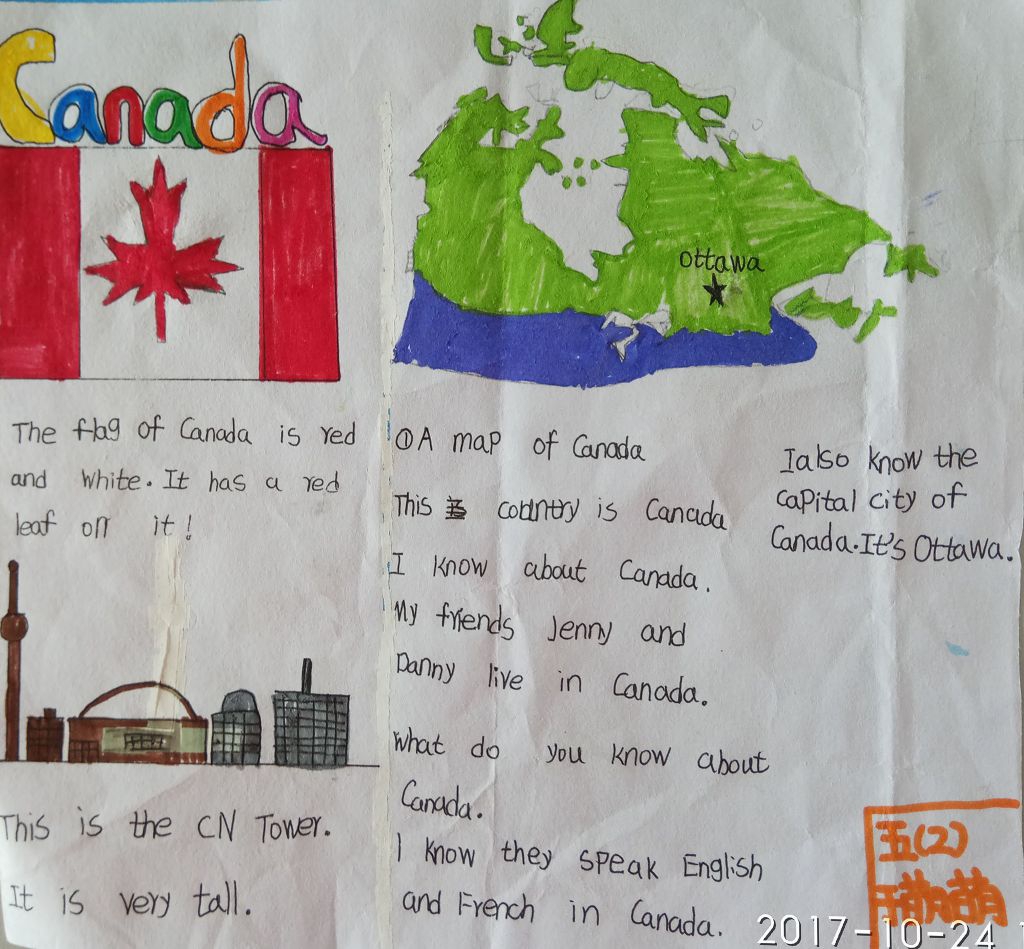 Canada
The flag of Canada is red
and white. It has a red
leaf on it!
This is the CN Tower.
It is very tall.
Ottawa
①A map of Canada
This country is Canada
I know about Canada.
My friends Jenny and
Danny live in Canada.
What do you know about
Canada.
I know they speak English
and French in Canada.
I also know the
capital city of
Canada. It's Ottawa.
五(2)
于萌萌
2017-10-24 1